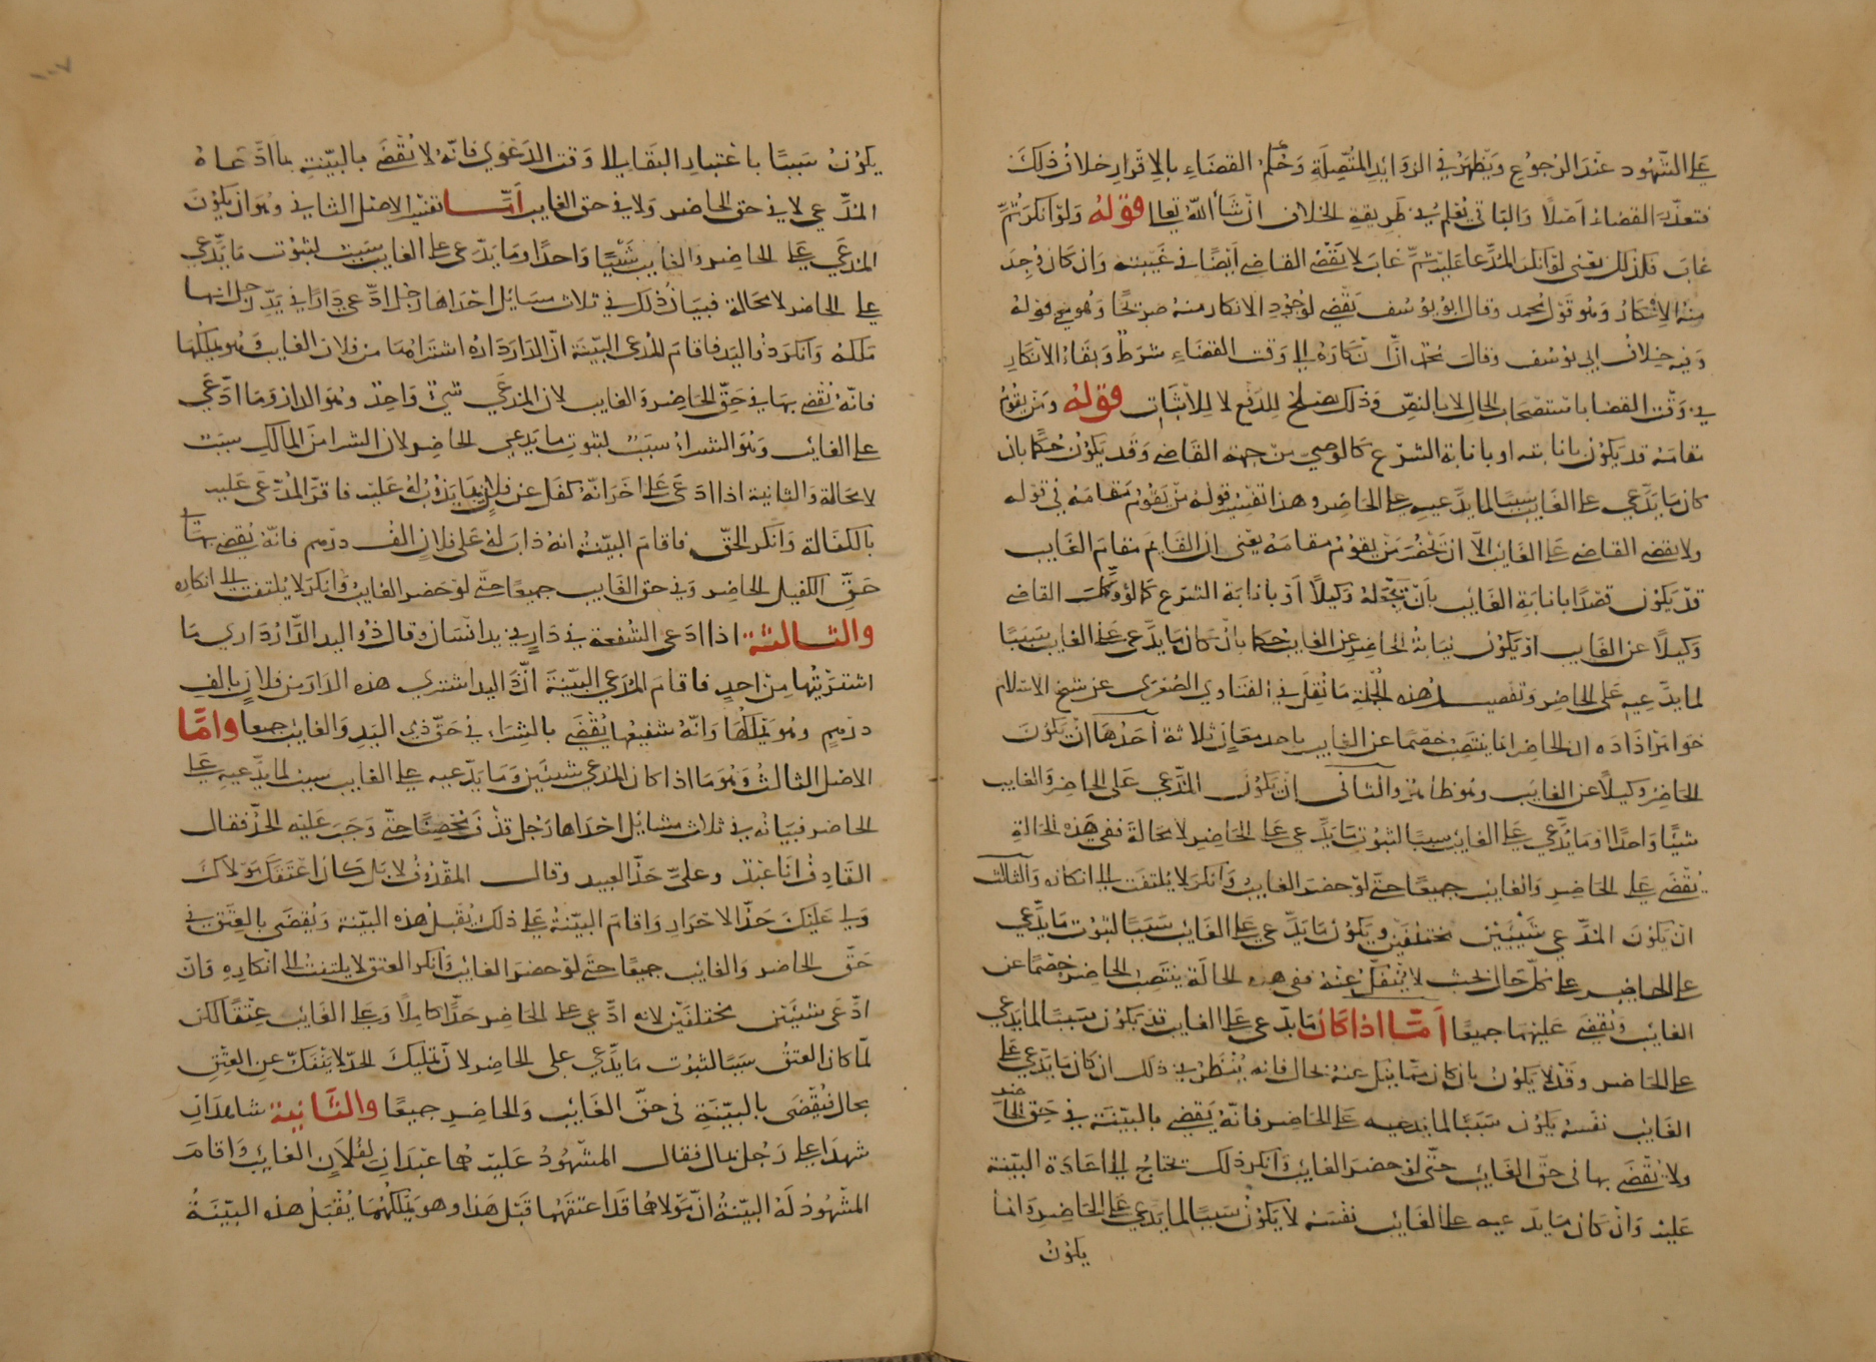 على الشهود عند الرجوع ويظهر في الزوائد المتصلة وحكم القضاء بالاقرار خلاف ذلك
فتعذر القضاء اصلا والباقي يعلم في طريقة الخلاف ان شا الله تعالى قوله ولو انكر ثم
غاب فكذلك يعنى لو انكر المدعا عليه ثم غاب لا يقضى القاضي ايضا في غيبته وان كان وجد
منه الانكار وهو قول محمد وقال ابو يوسف يقضي لوجود الانكار منه صريحا وهو معنى قوله
وفيه خلاف ابي يوسف وقال محمد ان انكاره الى وقت القضاء شرط وبقاء الانكار
في وقت القضا باستصحاب الحال لا بالنص وذلك يصلح للدفع لا للاثبات قوله ومن يقوم
مقامه قد يكون بانابته او بانابة الشرع كالوصي من جهة القاضي وقد يكون حكما بان
كان ما يدعي على الغايب سببا لما يدعيه على الحاضر وهذا تفسير قوله من يقوم مقامه في قوله
ولا يقضى القاضي على الغائب الا ان يحضر من يقوم مقامه يعنى ان القايم مقام الغايب
قد يكون قصدا بانابة الغائب بان يجعله وكيلا او بانابة الشرع كما لو وكلت القاضي
وكيلا عن الغايب او يكون نيابة الحاضر عن الغايب حكما بان كان ما يدعى على الغايب سببا
لما يدعيه على الحاضر وتفصيل هذه الجملة ما نقل في الفتاوى الصغرى عن شيخ الاسلام
خواهرزاده ان الحاضر انما ينتصب خصما عن الغايب باحد معان ثلاثة احدها ان يكون
الحاضر وكيلا عن الغايب وهو ظاهر والثاني ان يكون المدعي على الحاضر والغايب
شيئا واحدا وما يدعي على الغائب سببا لثبوت ما يدعى على الحاضر لا محالة ففي هذه الحالة
يقضى على الحاضر والغايب جميعا حتى لو حضر الغايب وانكر لا يلتفت الى انكاره والثالث
ان يكون المدعي شيئين مختلفين ويكون ما يدعى على الغائب سببا لثبوت ما يدعي
على الحاضر على كل حال بحيث لا ينفك عنه ففي هذه الحالة ينتصب الحاضر خصما عن
الغائب ويقضى عليهما جميعا اما اذا كان ما يدعى على الغايب قد يكون سببا لما يدعي
على الحاضر وقد لا يكون بان كان مما ينفك عنه بحال فانه ينظر في ذلك ان كان ما يدعي على
الغائب نفسه يكون سببا لما يدعيه على الحاضر فانه يقضي بالبينة في حق الحاضر
ولا يقضى بها في حق الغائب حتى لو حضر الغايب وانكر ذلك تحتاج الى اعادة البينة
عليه وان كان ما يدعيه على الغائب نفسه لا يكون سببا لما يدعي على الحاضر وانما
يكون
١٠٧
يكون سببا باعتبار البقا الى وقت الدعوى فانه لا يقضى بالبينة بما ادعاه
المدعي لا في حق الحاضر ولا في حق الغايب اما تفسير الاصل الثاني وهو ان يكون
المدعي على الحاضر والغايب شيئا واحدا وما يدعى على الغايب سبب لثبوت ما يدعي
على الحاضر لا محالة فبيان ذلك في ثلاث مسائل احداها رجل ادعى دارا في يد رجل انها
ملكه وانكر ذو اليد فاقام المدعي البينة ان الدار داره اشتراها من فلان الغايب وهو يملكها
فانه يقضى بها في حق الحاضر والغايب لان المدعي شيئ واحد وهو الدار وما ادعي
على الغائب وهو الشراء سبب لثبوت ما يدعي الحاضر لان الشرا من المالك سبب
لا محالة والثانية اذا ادعى على اخر انه كفل عن فلان بما يذوب له عليه فاقر المدعى عليه
بالكفالة وانكر الحق فاقام البينة انه ذاب له على فلان الف درهم فانه يقضى بها في
حق الكفيل الحاضر وفي حق الغايب جميعا حتى لو حضر الغايب وانكر لا يلتفت الى انكاره
والثالثة اذا ادعى الشفعة في دار في يد انسان وقال ذو اليد الدار داري ما
اشتريتها من احد فاقام المدعي البينة ان ذا اليد اشترى هذه الدار من فلان بالف
درهم وهو يملكها وانه شفيعها يقضى بالشراء في حق ذي اليد والغايب جميعا واما
الاصل الثالث وهو ما اذا كان المدعي شيئين وما يدعيه على الغايب سبب لما يدعيه على
الحاضر فبيانه في ثلاث مسائل احداها رجل قذف محصنا حتى وجب عليه الحد فقال
القاذف انا عبد وعلي حد العبيد وقال المقذوف لا بل كان اعتقك مولاك
ولي عليك حد الاحرار واقام البينة على ذلك يقبل هذه البينة ويقضى بالعتق في
حق الحاضر والغايب جميعا حتى لو حضر الغايب وانكر العتق لا يلتفت الى انكاره فان
ادعى شيئين مختلفين لانه ادعى على الحاضر حدا كاملا وعلى الغائب عتقا لكن
لما كان العتق سببا لثبوت ما يدعي على الحاضر لان تمليك الحد لا ينفك عن العتق
بحال فيقضى بالبينة في حق الغائب والحاضر جميعا والثانية شاهدان
شهدا على رجل بمال فقال المشهود عليه هما عبدان لفلان الغائب واقام
المشهود له البينة ان مولاهما قد اعتقهما قبل هذا وهو يملكهما يقبل هذه البينة